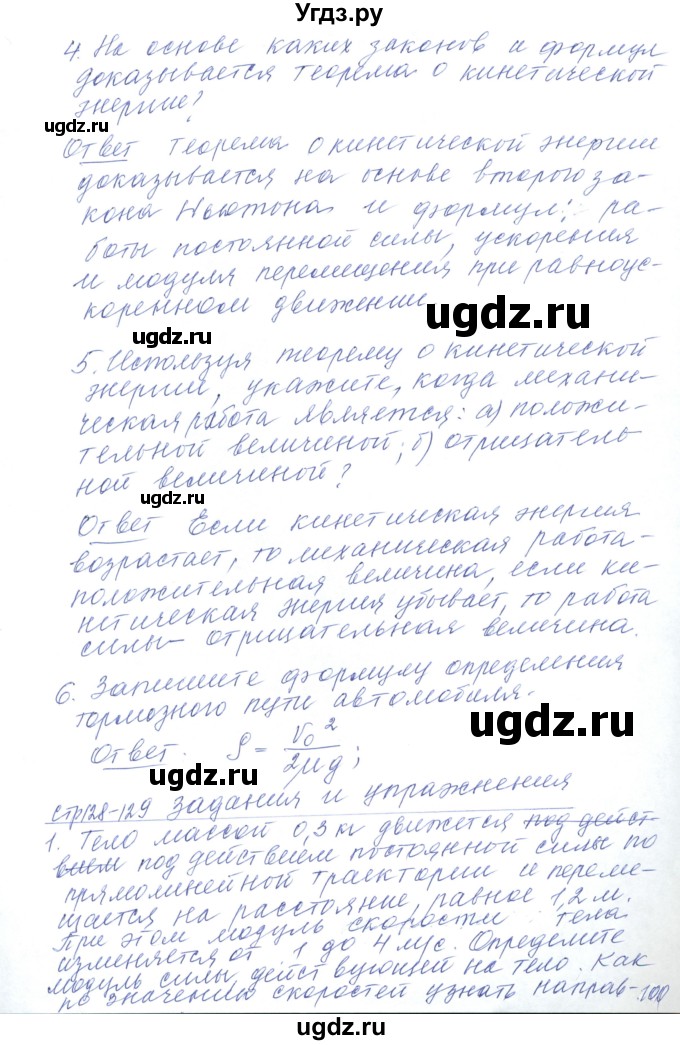 Угдз.ру
4. На основе каких законов и формул
доказывается теорема о кинетической
энергие?
ugdz.ru
Ответ Теорема о кинетической энергии
доказывается на основе второго за-
кона Ньютона и формул: ра-
боты постоянной силы, ускорения
и модуля перемещения при равноус-
коренном движении
ugdz.ru
ugdz.ru
5. Используя теорему о кинетической
энергии, укажите, когда механи-
ческая работа является: а) положи-
тельной величиной; б) отрицатель
ной величиной?
ugdz.ru
Ответ Если кинетическая энергия
возрастает, то механическая работа-
положительная величина, если ки-
нетическая энергия убывает, то работа
силы- отрицательная величина.
6. Запишите формулу определения
тормозного пути автомобиля.
ugdz.ru
Ответ. S = v₀²/2μg;
стр128-129 Задания и упражнения
1. Тело массой 0,3 кг движется под дейст-
вием под действием постоянной силы по
прямолинейной траектории и переме-
щается на расстояние, равное 1,2 м.
При этом модуль скорости тела
изменяется от 1 до 4 м/с. Определите
модуль силы действующей на тело. Как
по значению скоростей узнать направ-
100
ugdz.ru